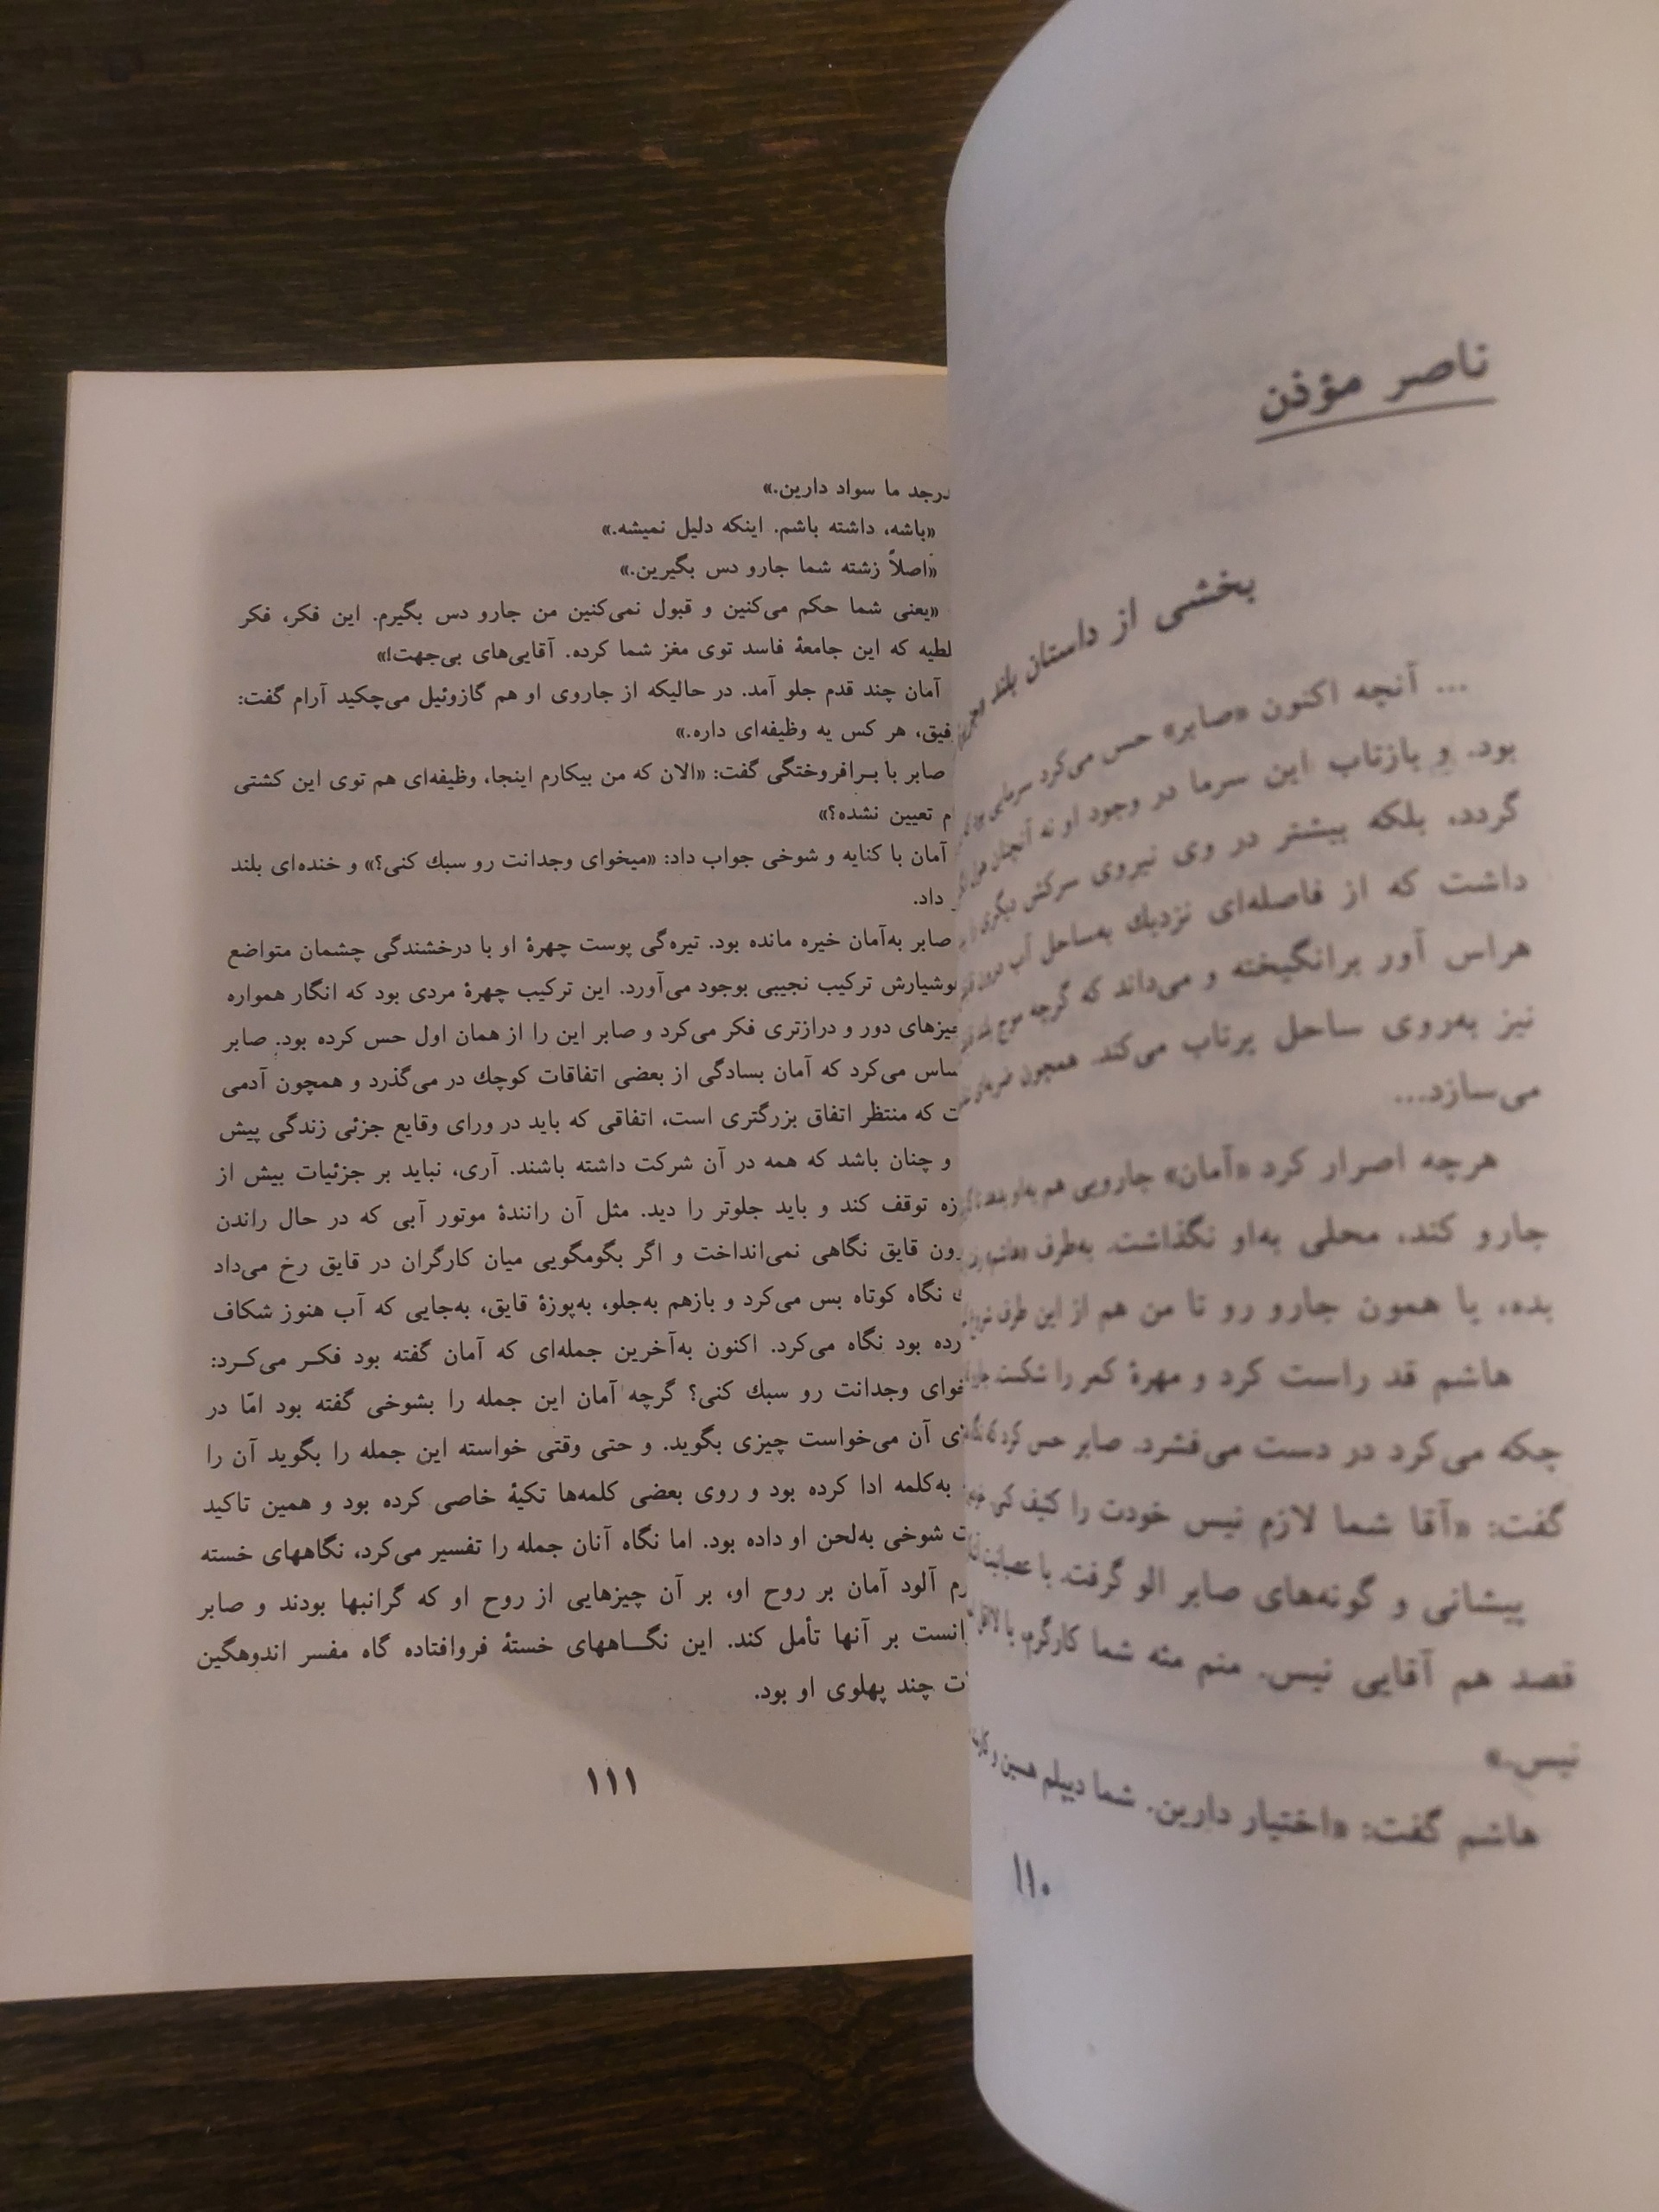 ناصر مؤذن
بخشی از داستان بلند
... آنچه اکنون «صابر» حس می‌کرد سرمایی
بود. و بازتاب این سرما در وجود او نه آنچنان
گردد، بلکه بیشتر در وی نیروی سرکش دیگری
داشت که از فاصله‌ای نزدیك به‌ساحل آب
هراس آور برانگیخته و می‌داند که گرچه موج
نیز به‌روی ساحل پرتاب می‌کند. همچون
می‌سازد...
هرچه اصرار کرد «آمان» جارویی هم به‌او بدهد
جارو کند، محلی به‌او نگذاشت. به‌طرف «هاشم»
بده، یا همون جارو رو تا من هم از این طرف
هاشم قد راست کرد و مهرۀ کمر را شکست.
چکه می‌کرد در دست می‌فشرد. صابر حس کرد که
گفت: «آقا شما لازم نیس خودت را کثیف کنی.
پیشانی و گونه‌های صابر الو گرفت. با عصبانیت
قصد هم آقایی نیس. منم مثه شما کارگرم.
نیس.»
هاشم گفت: «اختیار دارین. شما دیپلم هسین و
۱۱۰
ما سواد دارین.»
«باشه، داشته باشم. اینکه دلیل نمیشه.»
«اصلاً زشته شما جارو دس بگیرین.»
«یعنی شما حکم می‌کنین و قبول نمی‌کنین من جارو دس بگیرم. این فکر، فکر
که این جامعۀ فاسد توی مغز شما کرده. آقایی‌های بی‌جهت!»
آمان چند قدم جلو آمد. در حالیکه از جاروی او هم گازوئیل می‌چکید آرام گفت:
هر کس یه وظیفه‌ای داره.»
صابر با بـرافروختگی گفت: «الان که من بیکارم اینجا، وظیفه‌ای هم توی این کشتی
تعیین نشده؟»
آمان با کنایه و شوخی جواب داد: «میخوای وجدانت رو سبك کنی؟» و خنده‌ای بلند
داد.
صابر به‌آمان خیره مانده بود. تیره‌گی پوست چهرۀ او با درخشندگی چشمان متواضع
ترکیب نجیبی بوجود می‌آورد. این ترکیب چهرۀ مردی بود که انگار همواره
دور و درازتری فکر می‌کرد و صابر این را از همان اول حس کرده بود. صابر
می‌کرد که آمان بسادگی از بعضی اتفاقات کوچك در می‌گذرد و همچون آدمی
که منتظر اتفاق بزرگتری است، اتفاقی که باید در ورای وقایع جزئی زندگی پیش
و چنان باشد که همه در آن شرکت داشته باشند. آری، نباید بر جزئیات بیش از
توقف کند و باید جلوتر را دید. مثل آن رانندۀ موتور آبی که در حال راندن
قایق نگاهی نمی‌انداخت و اگر بگومگویی میان کارگران در قایق رخ می‌داد
نگاه کوتاه بس می‌کرد و بازهم به‌جلو، به‌پوزۀ قایق، به‌جایی که آب هنوز شکاف
بود نگاه می‌کرد. اکنون به‌آخرین جمله‌ای که آمان گفته بود فکـر می‌کـرد:
وجدانت رو سبك کنی؟ گرچه آمان این جمله را بشوخی گفته بود امّا در
آن می‌خواست چیزی بگوید. و حتی وقتی خواسته این جمله را بگوید آن را
به‌کلمه ادا کرده بود و روی بعضی کلمه‌ها تکیۀ خاصی کرده بود و همین تاکید
شوخی به‌لحن او داده بود. اما نگاه آنان جمله را تفسیر می‌کرد، نگاههای خسته
آلود آمان بر روح او، بر آن چیزهایی از روح او که گرانبها بودند و صابر
بر آنها تأمل کند. این نگـــاههای خستۀ فروافتاده گاه مفسر اندوهگین
چند پهلوی او بود.
۱۱۱